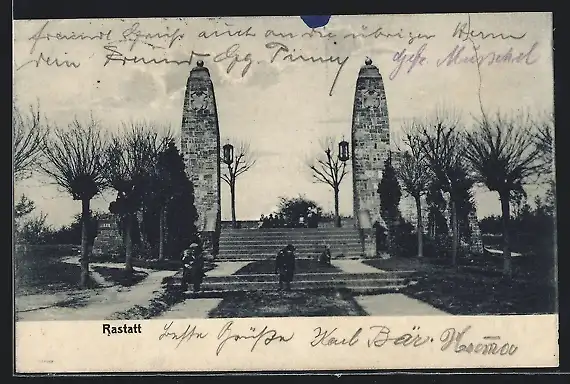 freundl. Gruß auch an die übrigen Herrn
dein Freund Gg.
Gefr. Muschel
Rastatt
beste Grüße Karl Bär.